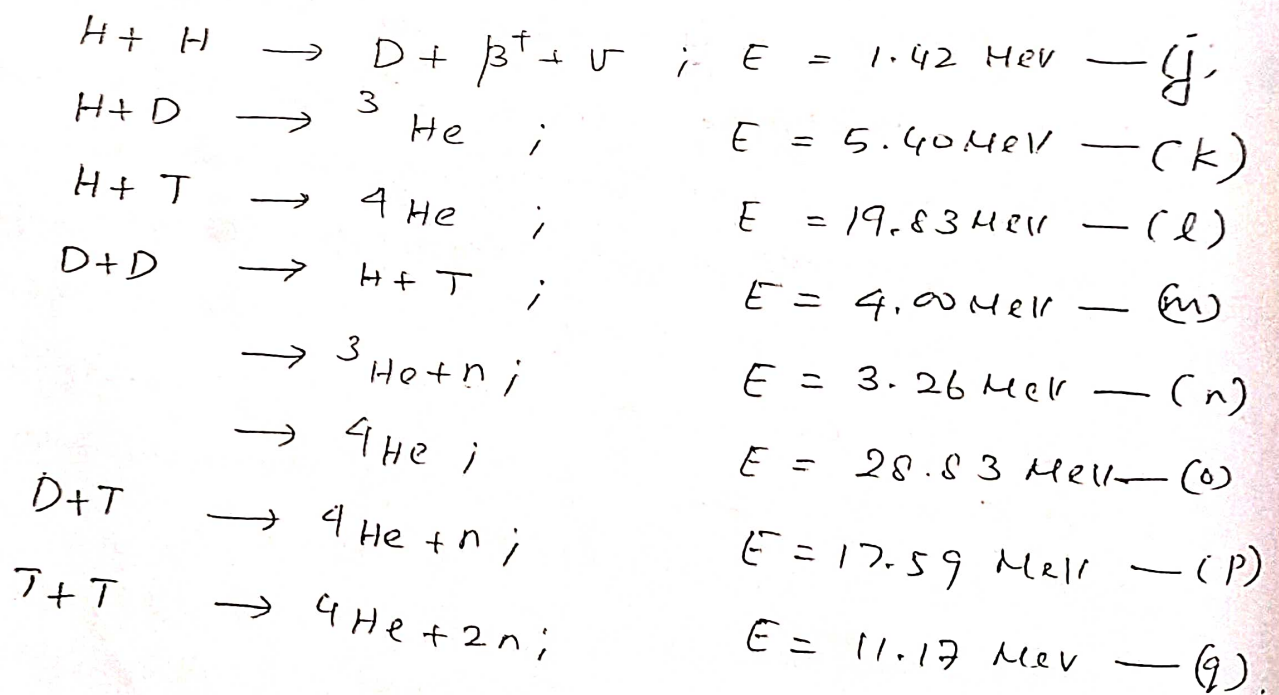 H + H → D + β⁺ + υ ; E = 1.42 MeV — (j)
H + D → ³He ; E = 5.40 MeV — (k)
H + T → 4He ; E = 19.83 MeV — (l)
D + D → H + T ; E = 4.00 MeV — (m)
→ ³He + n ; E = 3.26 MeV — (n)
→ ⁴He ; E = 28.83 MeV — (o)
D + T → ⁴He + n ; E = 17.59 MeV — (p)
T + T → ⁴He + 2n ; E = 11.17 MeV — (q)